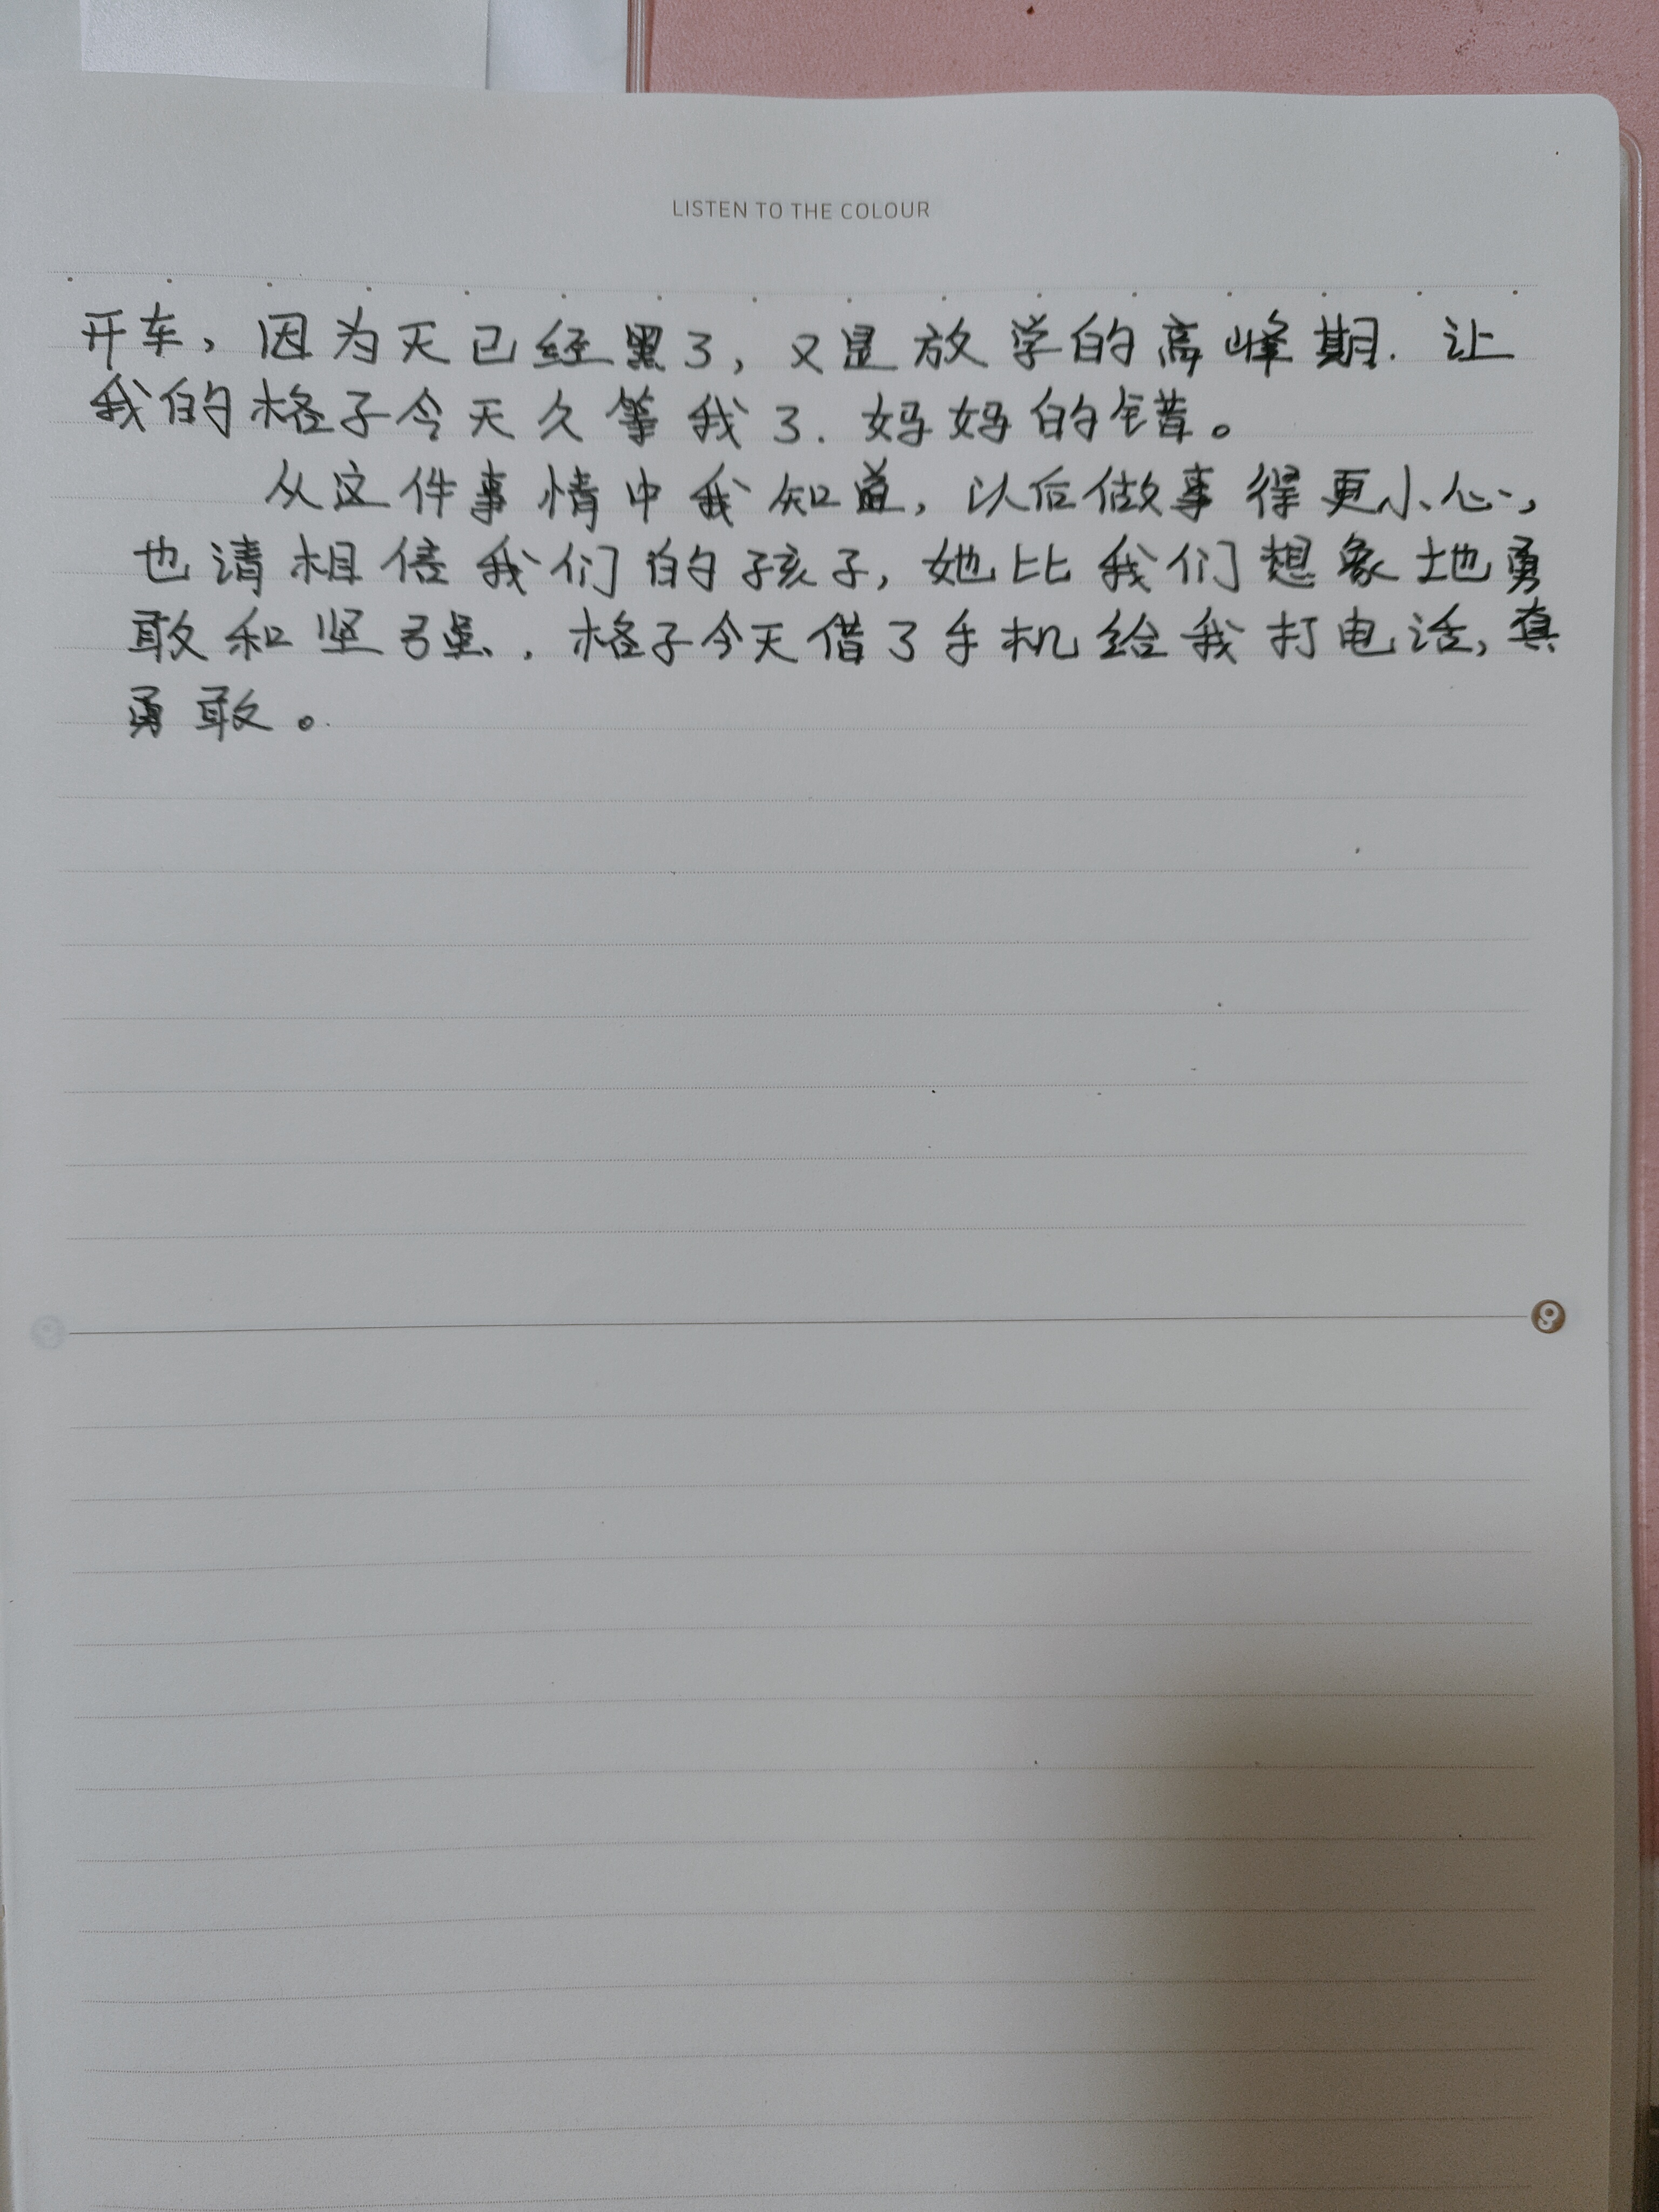 LISTEN TO THE COLOUR
开车，因为天已经黑了，又是放学的高峰期．让
我的格子今天久等我了．妈妈的错。
从这件事情中我知道，以后做事得更小心，
也请相信我们的孩子，她比我们想象地勇
敢和坚强．格子今天借了手机给我打电话，真
勇敢。
9